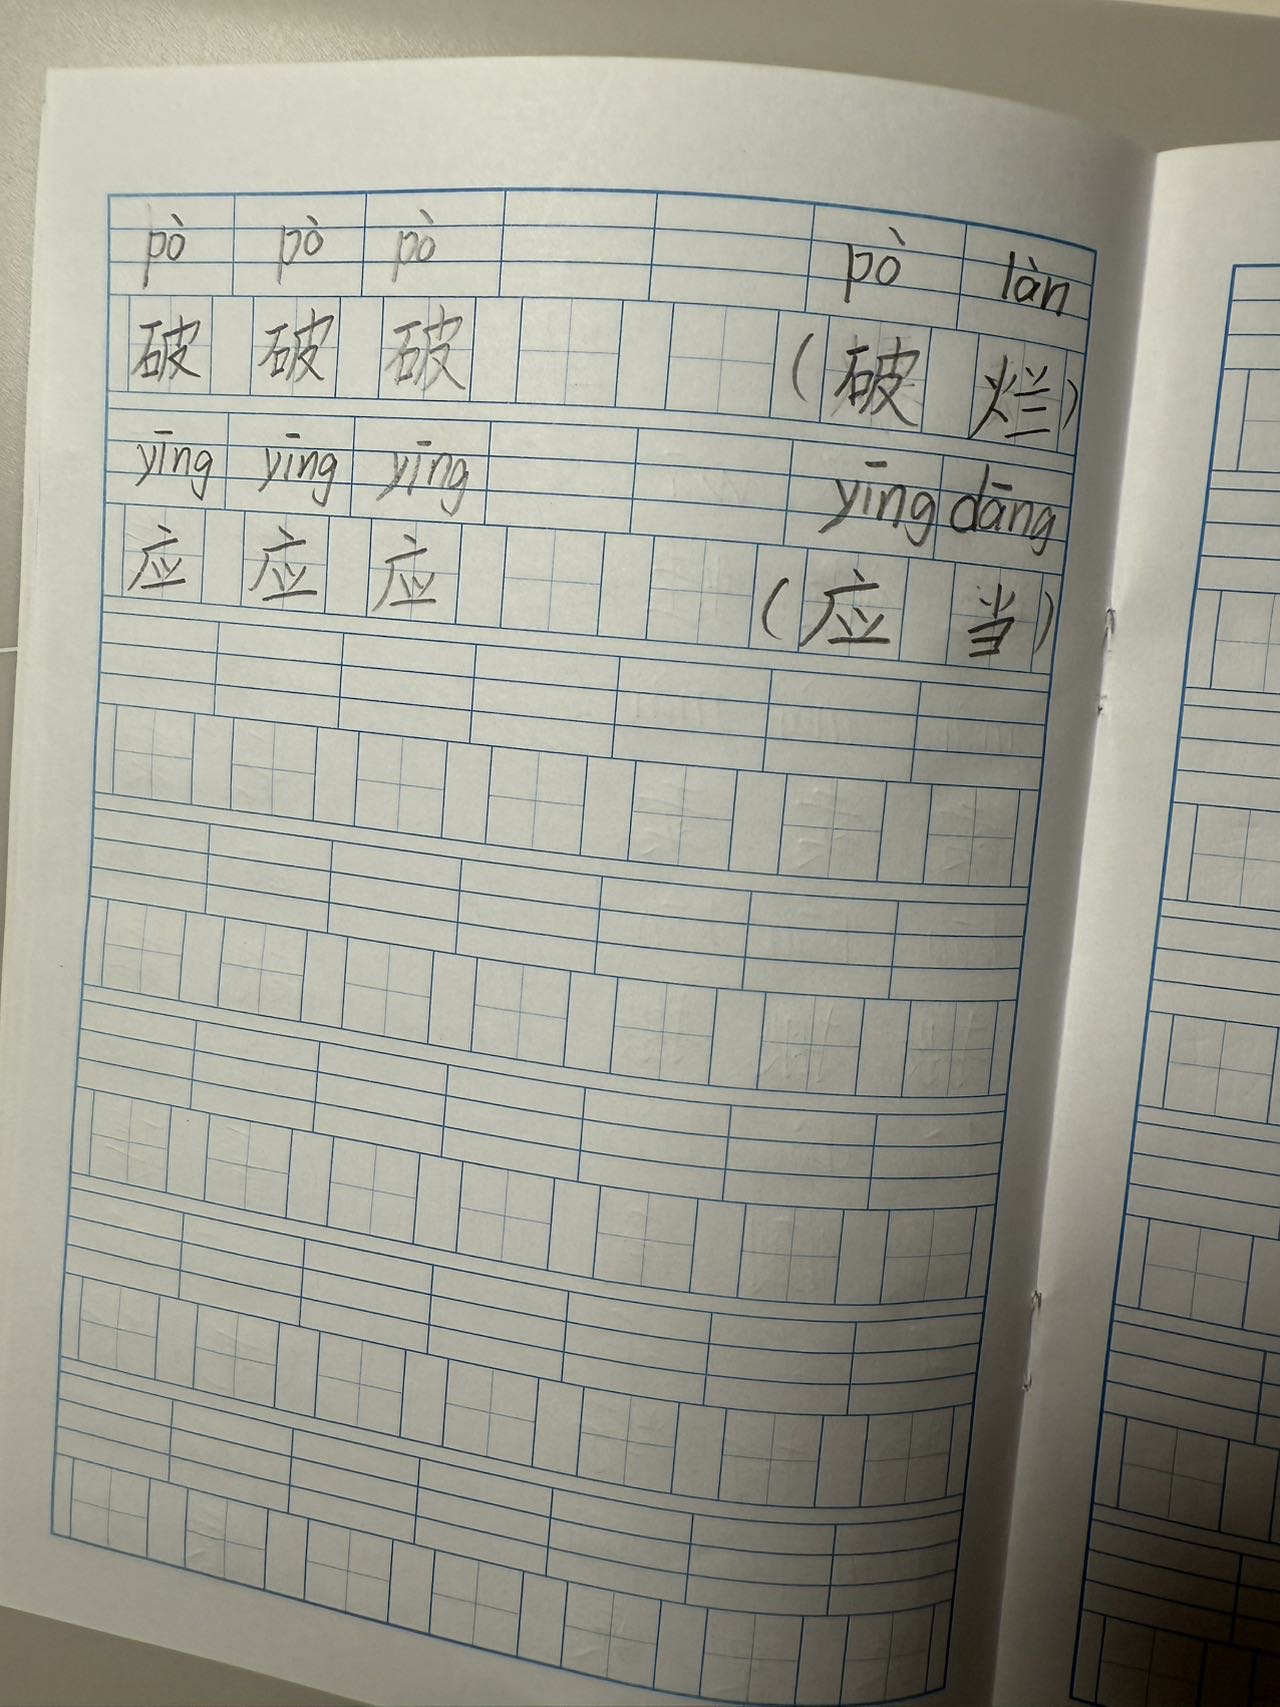 pò pò pò pò làn
破 破 破 (破 烂)
yīng yīng yīng yīng dāng
应 应 应 (应 当)